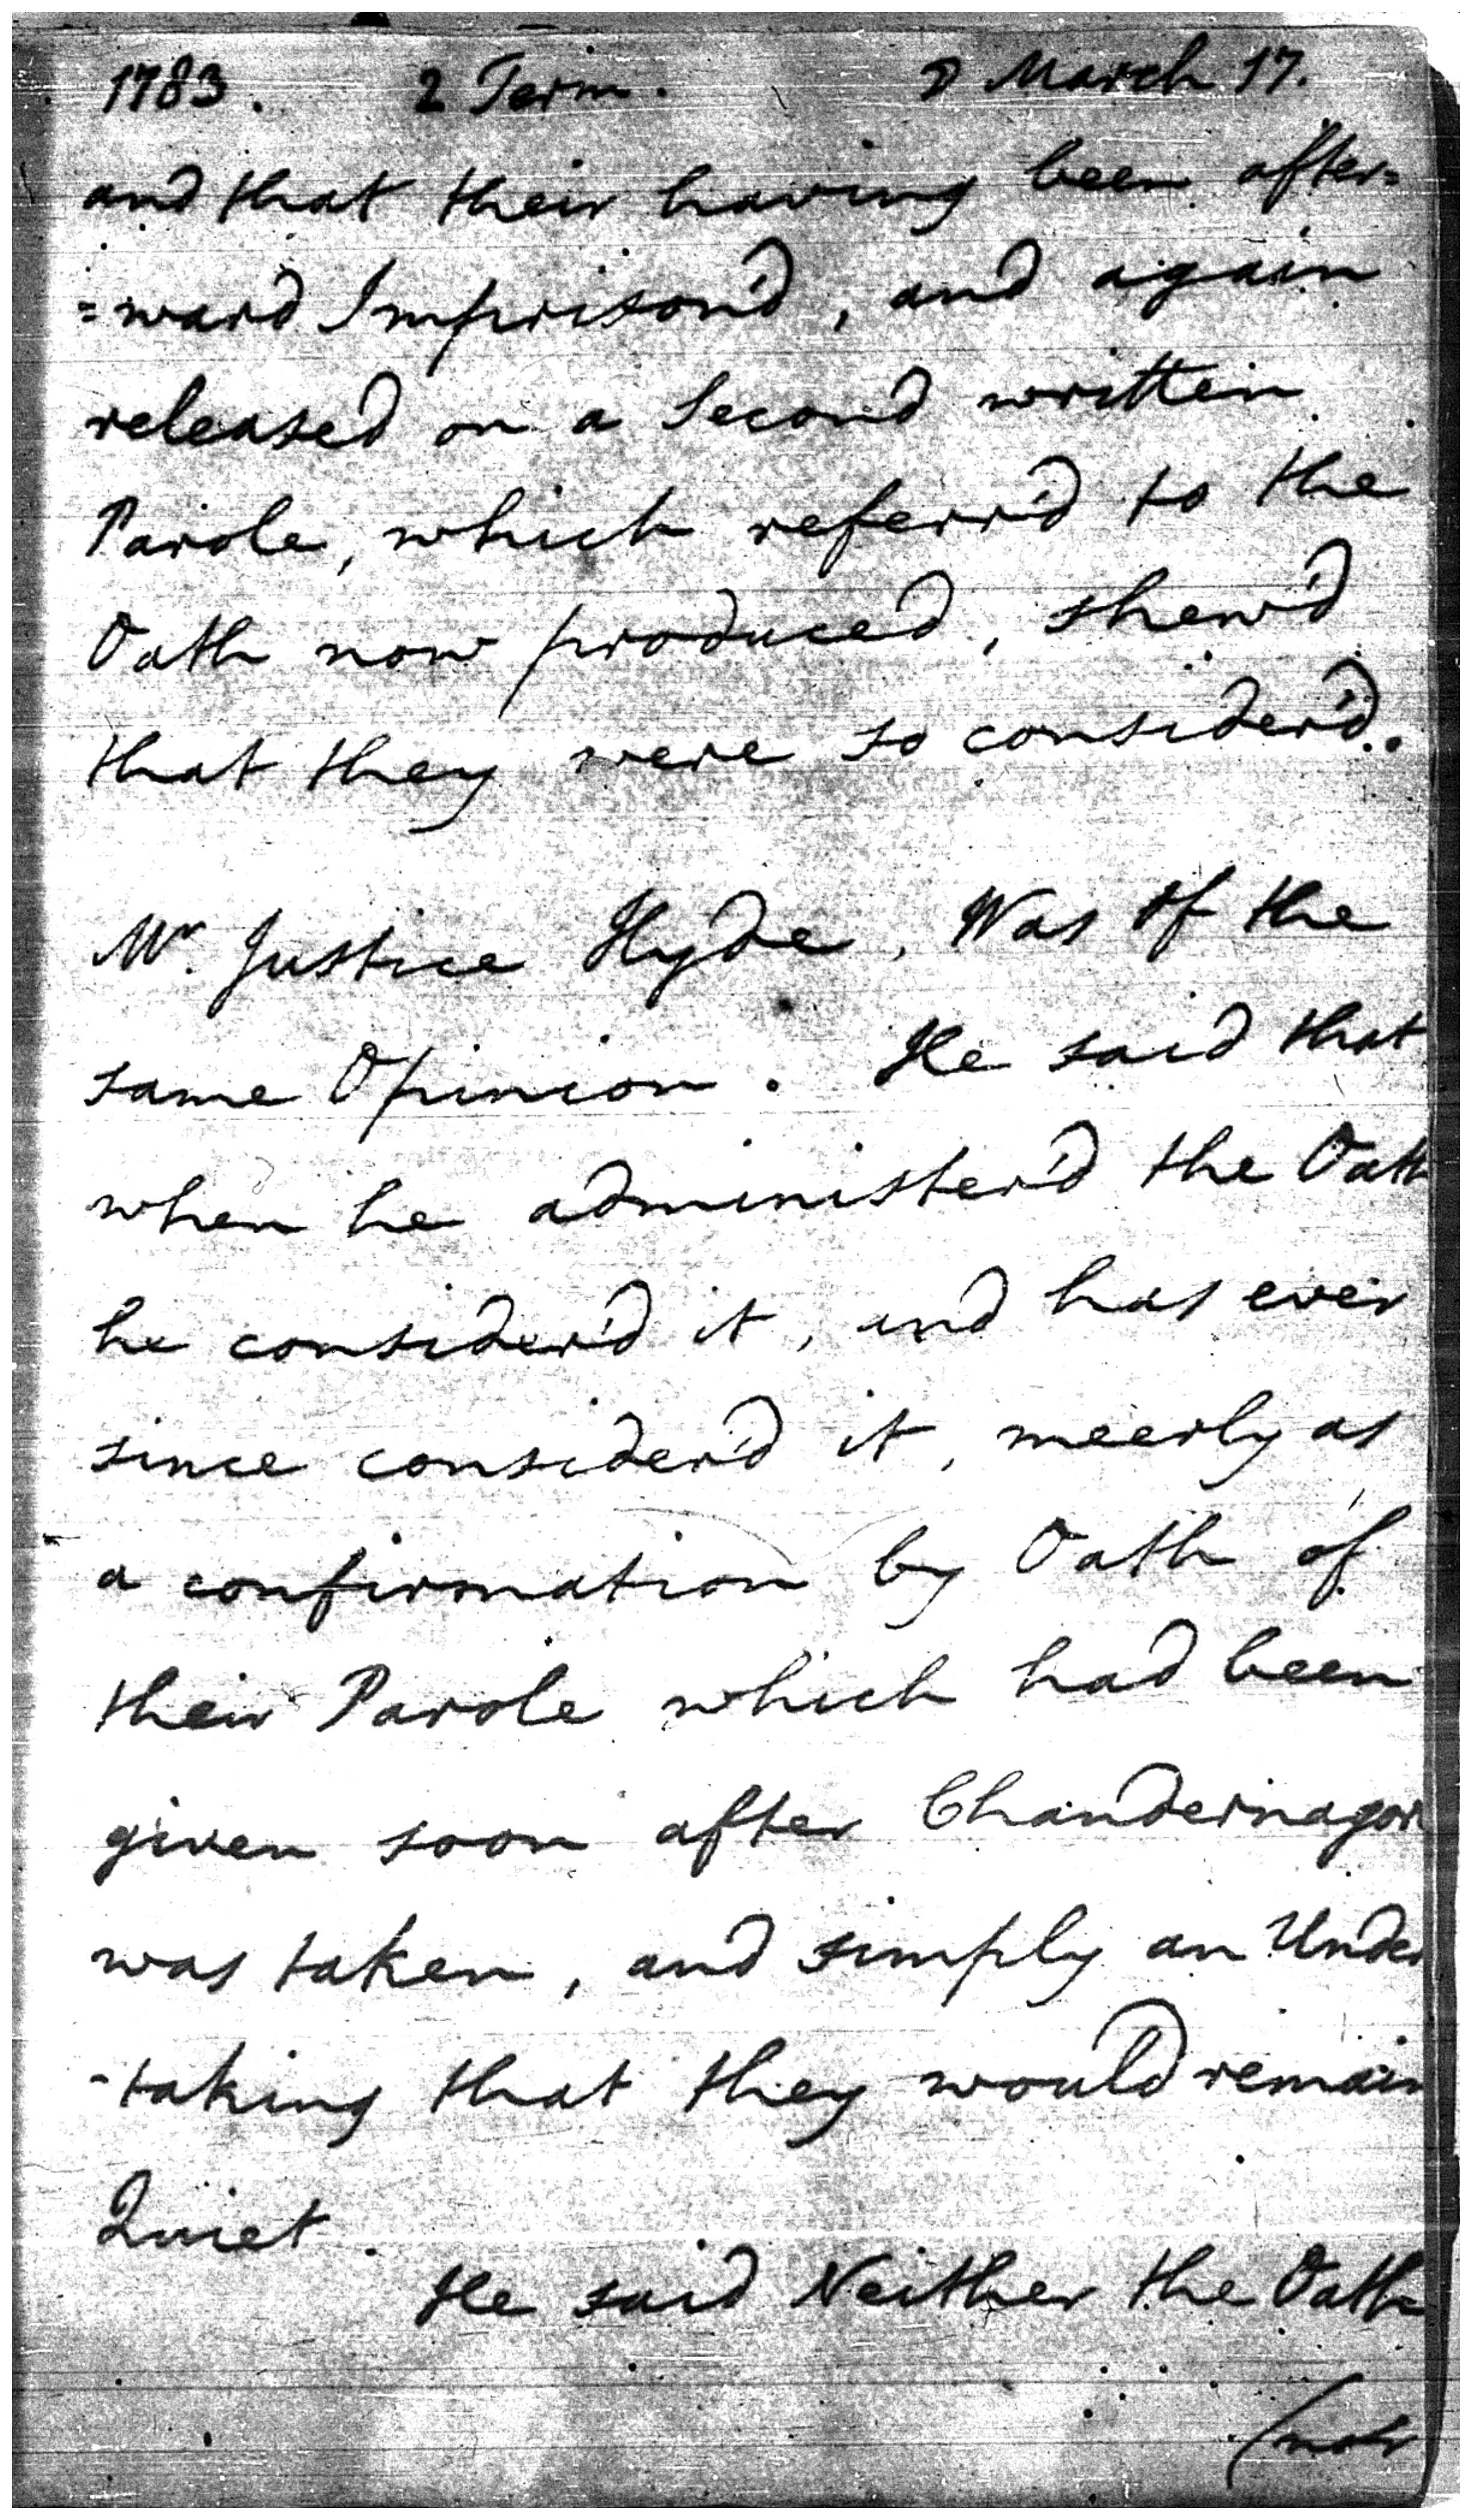 1783. 2 Term. D March 17.
and that their having been after=
=ward Imprison'd, and again
released on a Second written
Parole, which referr'd to the
Oath now produced, shew'd
that they were so consider'd.
Mr. Justice Hyde, Was of the
same Opinion. He said that
when he administer'd the Oath
he consider'd it, and has ever
since consider'd it, meerly as
a confirmation by Oath of
their Parole which had been
given soon after Chandernagor
was taken, and simply an Under
-taking that they would remain
Quiet.
He said Neither the Oath